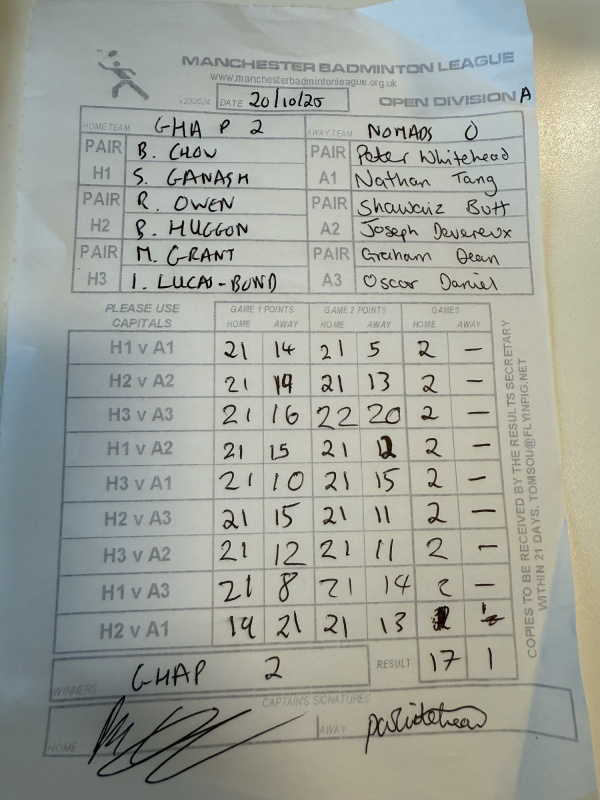 MANCHESTER BADMINTON LEAGUE
www.manchesterbadmintonleague.org.uk
v230624 DATE 20/10/25 OPEN DIVISION A
HOME TEAM GHAP 2 AWAY TEAM NOMADS O
PAIR H1 B. CHOW PAIR A1 Peter Whitehead
S. GANASH Nathan Tang
PAIR H2 R. OWEN PAIR A2 Shawaiz Butt
B. HUGGON Joseph Devereux
PAIR H3 M. GRANT PAIR A3 Graham Dean
I. LUCAS-BUND Oscar Daniel
PLEASE USE CAPITALS GAME 1 POINTS GAME 2 POINTS GAMES
HOME AWAY HOME AWAY HOME AWAY
H1 v A1 21 14 21 5 2 –
H2 v A2 21 19 21 13 2 –
H3 v A3 21 16 22 20 2 –
H1 v A2 21 15 21 12 2 –
H3 v A1 21 10 21 15 2 –
H2 v A3 21 15 21 11 2 –
H3 v A2 21 12 21 11 2 –
H1 v A3 21 8 21 14 2 –
H2 v A1 19 21 21 13
WINNERS GHAP 2 RESULT 17 1
CAPTAIN'S SIGNATURES
HOME AWAY PWhitehead
COPIES TO BE RECEIVED BY THE RESULTS SECRETARY
WITHIN 21 DAYS. TOMSOU@FLYINPIG.NET